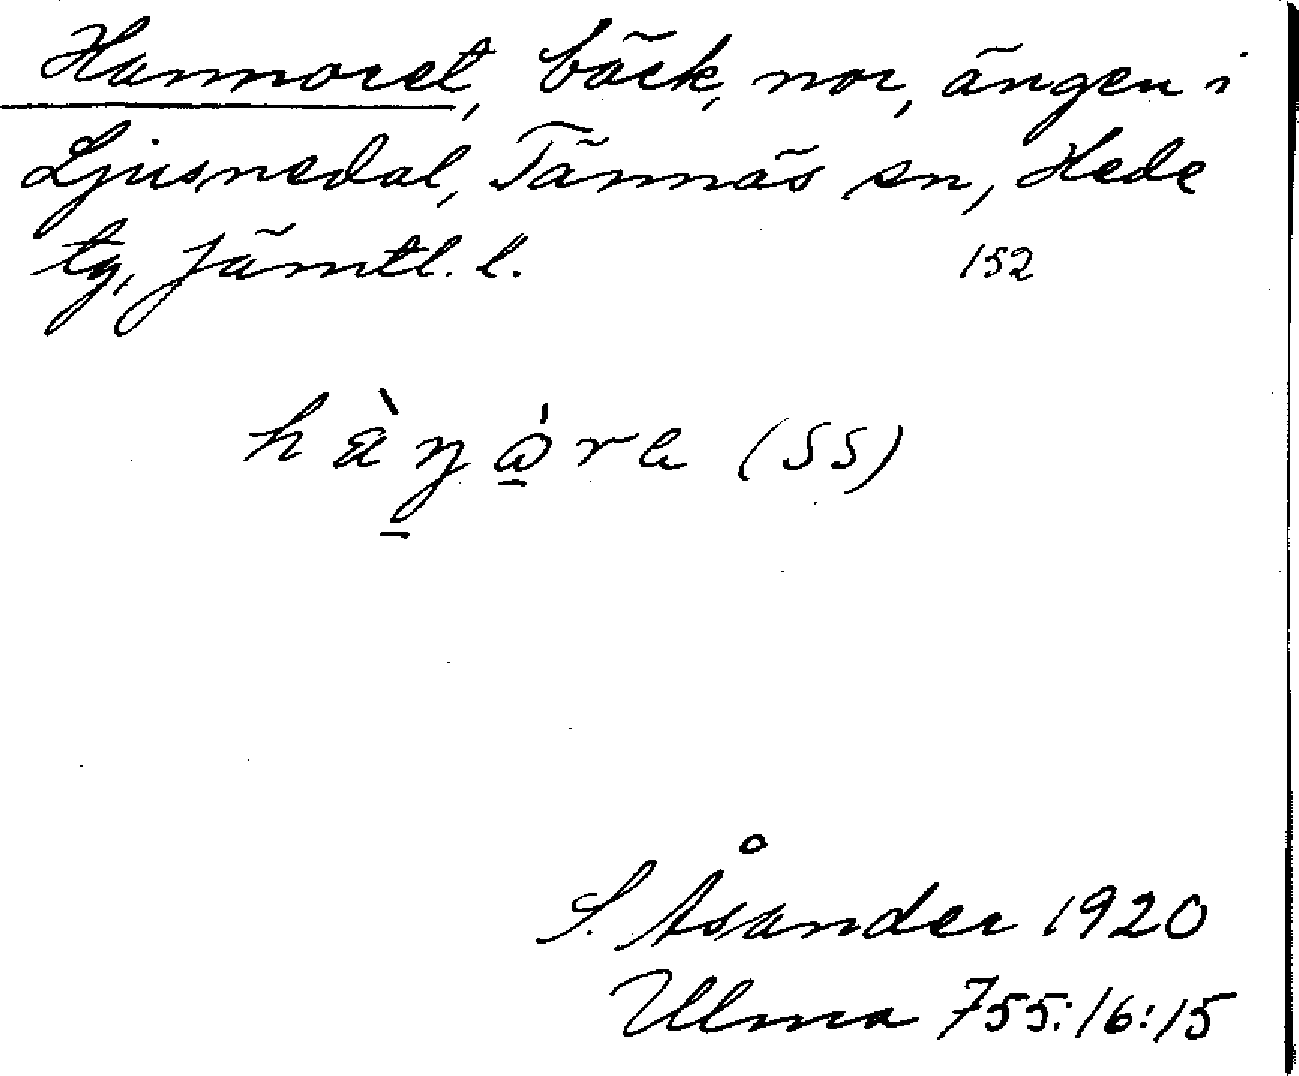 Hannoret, bäck, nor, ängen i
Ljusnedal, Tännäs sn, Hede
tg, Jämtl. l. 152
hàŋą̊́ra (SS)
S. Åsander 1920
Ulma 755:16:15